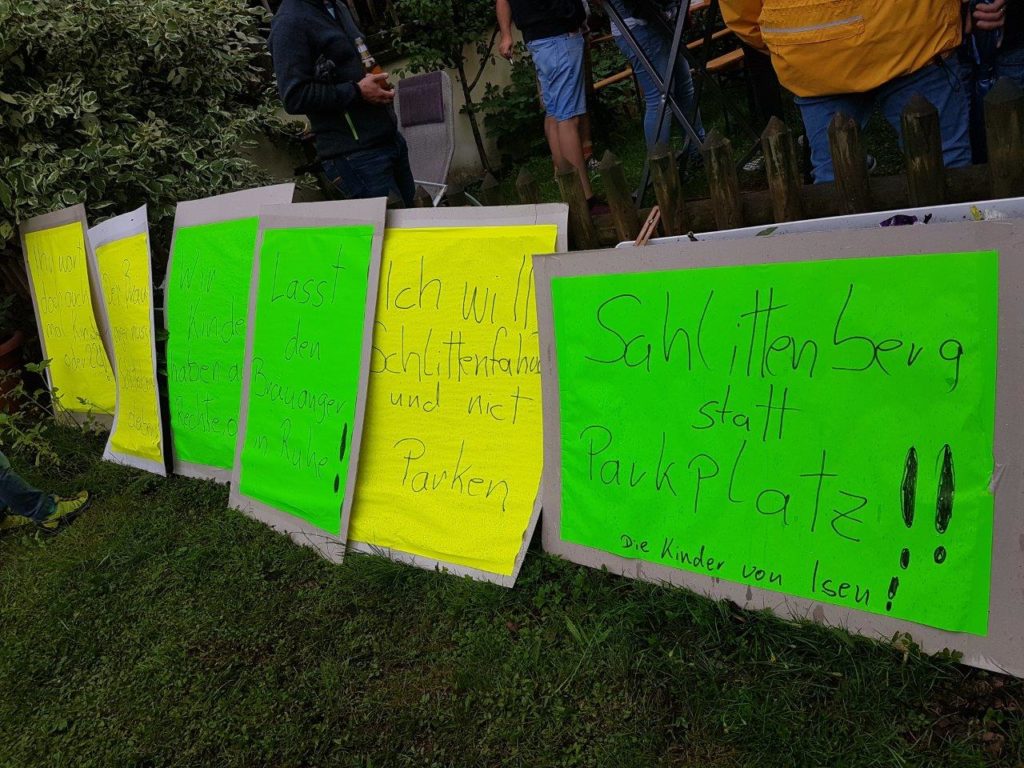 doch auch
mal Kind
Wir
Kinde
haben a
Rechte
Lasst
den
Brauanger
in Ruhe!
Ich will
Schlittenfahr
und nict
Parken
Sahlittenberg
statt
Parkplatz!!
Die Kinder von Isen!